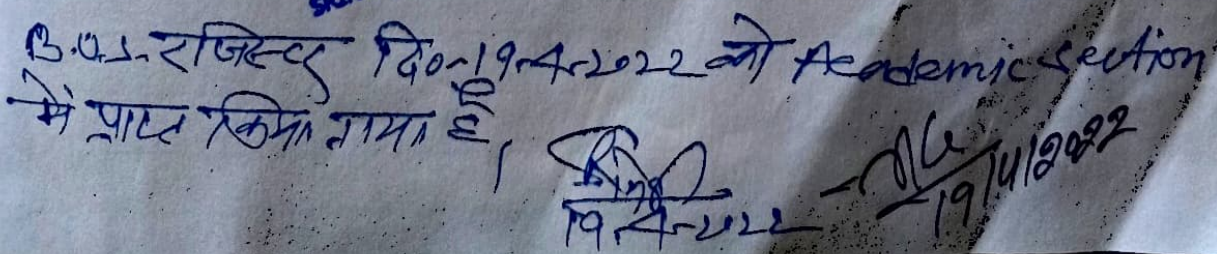 रजिस्टर दि०-19-4-2022 को Academic Section
में प्राप्त किया गया है,
19-4-2022
19/4/2022